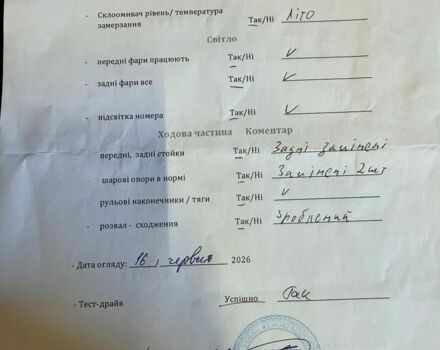 - Склоомивач рівень/ температура замерзання Так/Ні Літо
Світло
- передні фари працюють Так/Ні ✓
- задні фари все Так/Ні ✓
- підсвітка номера Так/Ні ✓
Ходова частина Коментар
- передні, задні стойки Так/Ні Задні замінені
- шарові опори в нормі Так/Ні Замінені 2шт
- рульові наконечники / тяги Так/Ні ✓
- розвал - сходження Так/Ні Зроблений
- Дата огляду: 16, червня 2026
- Тест-драйв Успішно Так